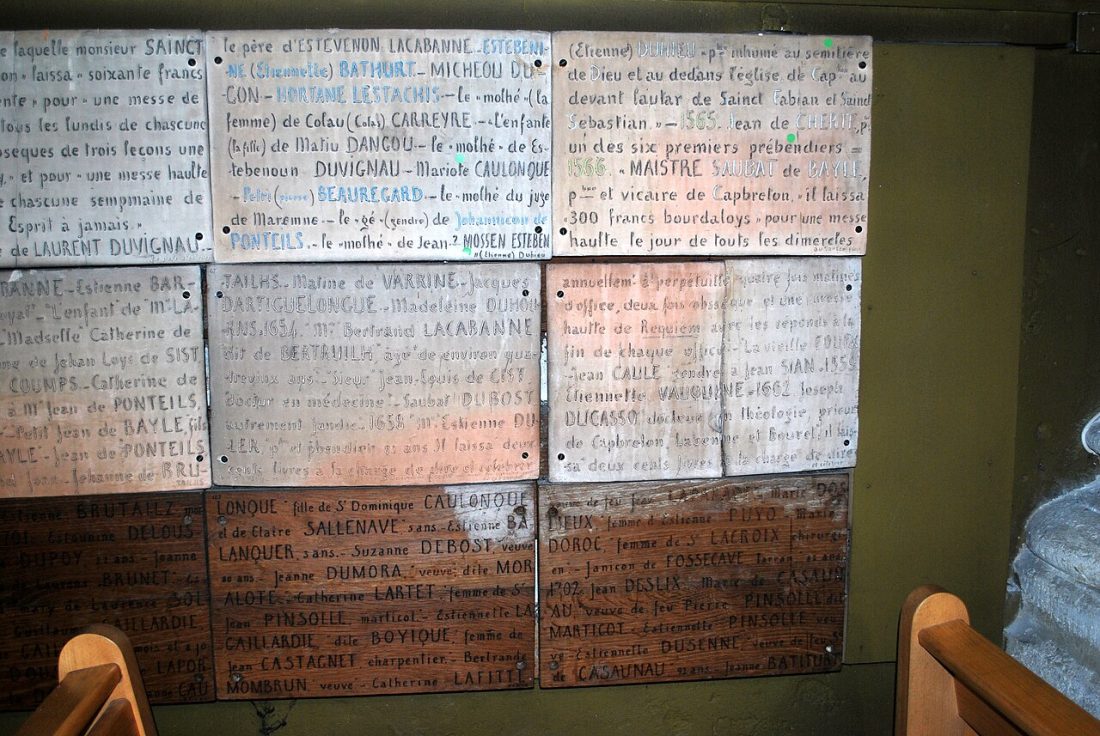 e laquelle monsieur SAINCT
on » laissa » soixante francs
ente » pour » une messe de
tous les lundis de chascune
oseques de trois leçons une
» et pour » une messe haulte
e chascune sempmaine de
Esprit à jamais. »
de LAURENT DUVIGNAU
le père d'ESTEVENON LACABANNE - ESTEBENI-
-NE (Etiennette) BATHURT - MICHEOU DU-
CON - HORTANE LESTACHIS - le « molhé » (la
femme) de Colau (Colas) CARREYRE - « L'enfante
(la fille) de Matiu DANGOU - le « molhé » de Es-
tebenoun DUVIGNAU - Mariote CAULONQUE
- Petri (pierre) BEAUREGARD - le « molhé du juge
de Maremne - le « gé » (gendre) de Johannicon de
PONTEILS. - le « molhé » de Jean ? MOSSEN ESTEBEN
(Etienne) Duhieu
(Etienne) DUHIEU « pbre inhumé au semitière
de Dieu et au dedans l'église de Capton au
devant l'autar de Sainct Fabian et Sainct
Sebastian. » - 1565. Jean de CHERIE, p
un des six premiers prébendiers =
1566. « MAISTRE SAUBAT de BAYLE,
pbre et vicaire de Capbreton, « il laissa
« 300 francs bourdaloys » pour une messe
haulte le jour de touts les dimercles
RANNE - Estienne BAR-
"L'enfant de Mr LA-
"Madselle" Catherine de
de Jehan Loys de SIST
COUMPS - Catherine de
à Mr Jean de PONTEILS,
- Petit Jean de BAYLE, fils
AYLE - Jean de PONTEILS
Jean - Johanne de BRU-
TAILHS - Matine de VARRINE - Jacques
DARTIGUELONGUE - Madeleine DUHOU
1654. "Mr Bertrand LACABANNE
dit de BERTRUILH" âgé "de environ qua-
treving ans." "Sieur" Jean-Louis de CIST,
doctur en médecine" - Saubat DUBOST
autrement 1658 "Mr Estienne DU-
LER, pr et prebendier" ans Il laissa deux
cents livres à la charge de dire et celebrer
annuellemt à perpétuité quatre fois matines
d'office, deux fois obsèque et une messe
haulte de Requiem avec les reponds à la
fin de chaque office - La vieille
Jean CAULE gendre à Jean SIAN. 1559
Etiennette VAUQUINE - 1662 Joseph
DUCASSO, docteur en théologie, prieur
de Capbreton, Labenne et Bouret, il lais-
sa deux cents livres à la charge de dire
Estienne BRUTAILZ
1701. Estounine DELOUS
DUPOY, 22 ans - Jeanne
de Laurens BRUNET -
mary de Laurence
GAILLARDIE
mois et 4 jo
de LAPOR
CAU
LONQUE "fille de St Dominique CAULONQUE
et de Claire SALLENAVE" sans - Estienne BA-
LANQUER, sans - Suzanne DEBOST, veuve
80 ans - Jeanne DUMORA, "veuve, dite MOR
ALOTE - Catherine LARTET, femme de St
Jean PINSOLLE, marticot. - Estiennette LA
GAILLARDIE, "dite BOYIQUE, femme de
Jean CASTAGNET, charpentier - Bertrande
MOMBRUN, veuve" - Catherine LAFITTE
de feu Jean - Marie DOS
LIEUX, femme d'Estienne PUYO - Marie
DOROC, femme de St LACROIX chirurgi-
en - Janicon de FOSSECAVE
1702. Jean DESLIX - Marie de CASAUN
AU, "veuve de feu Pierre PINSOLLE dit
MARTICOT - Estiennette PINSOLLE, veu
ve - Estiennette DUSENNE, veuve de feu
de CASAUNAU 92 ans - Jeanne BATHURT